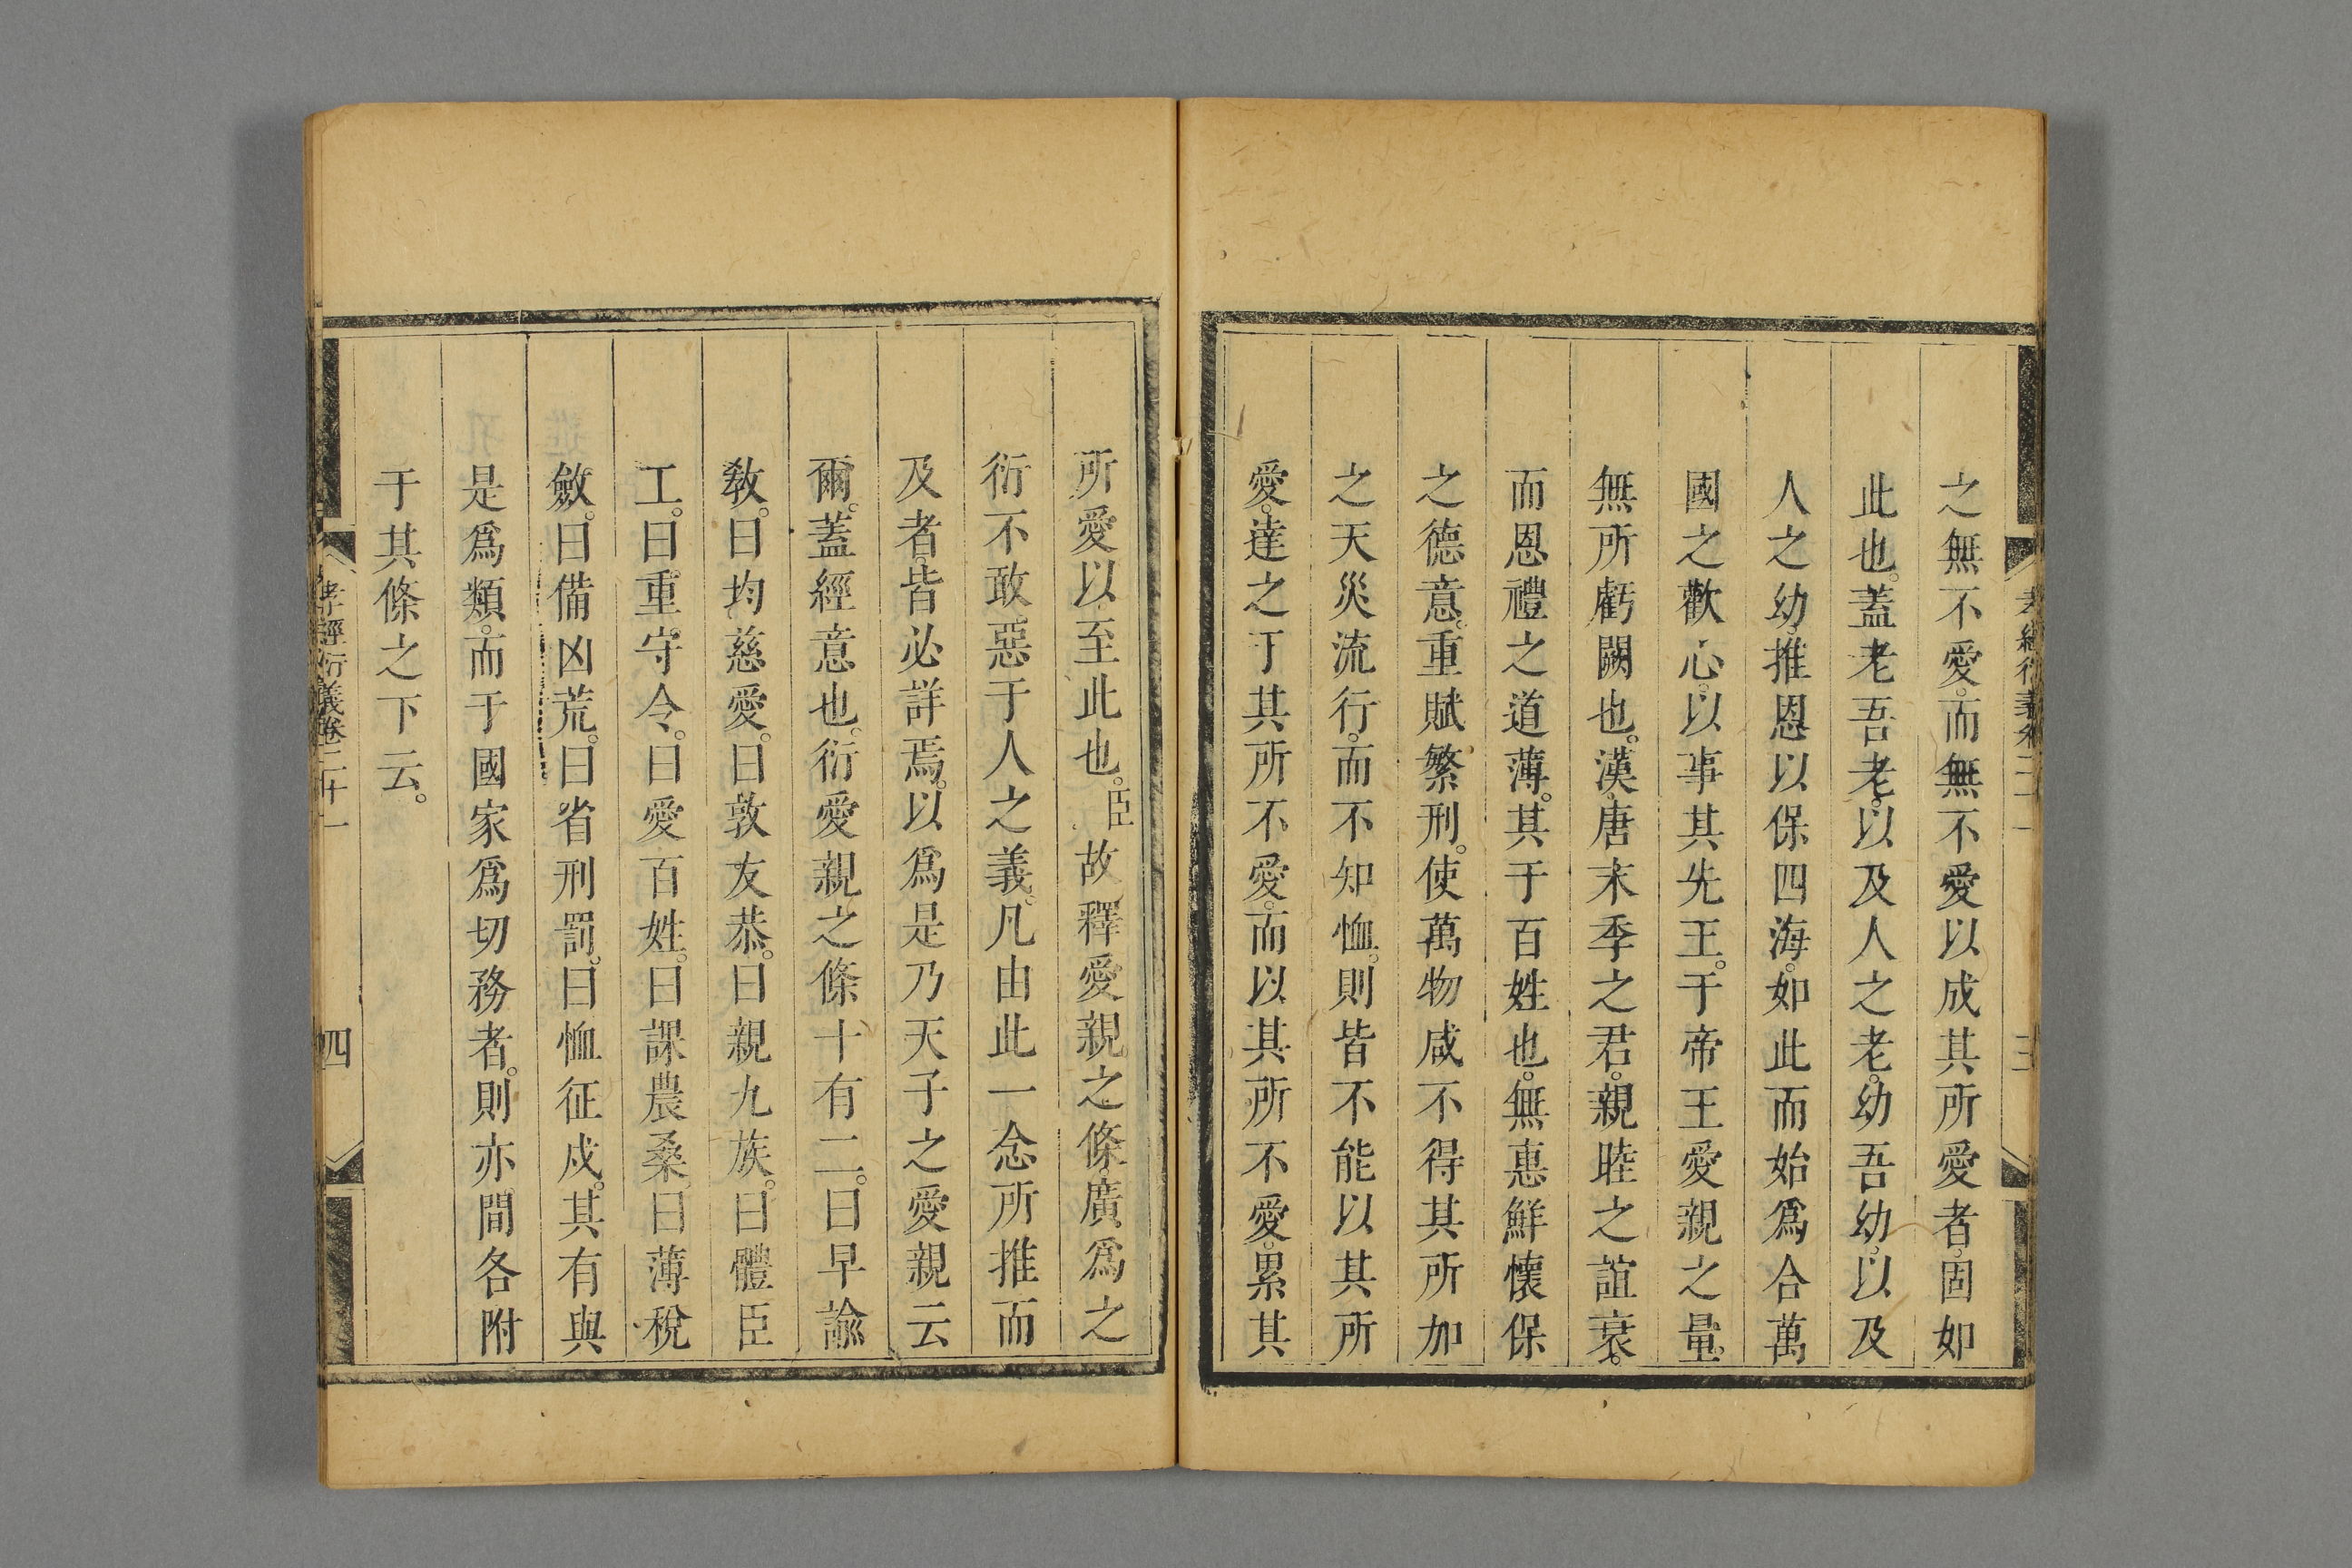 之無不愛。而無不愛以成其所愛者。固如
此也。蓋老吾老。以及人之老。幼吾幼。以及
人之幼。推恩以保四海。如此而始爲合萬
國之歡心。以事其先王。于帝王愛親之量。
無所虧闕也。漢唐末季之君。親睦之誼衰。
而恩禮之道薄。其于百姓也。無惠鮮懷保
之德意。重賦繁刑。使萬物咸不得其所加
之天災流行。而不知恤。則皆不能以其所
愛。達之于其所不愛。而以其所不愛。累其
所愛以至此也。臣故釋愛親之條。廣爲之
衍不敢惡于人之義。凡由此一念所推而
及者。皆必詳焉。以爲是乃天子之愛親云
爾。蓋經意也。衍愛親之條十有二。曰早諭
敎。曰均慈愛。曰敦友恭。曰親九族。曰體臣
工。曰重守令。曰愛百姓。曰課農桑。曰薄稅
斂。曰備凶荒。曰省刑罰。曰恤征戍。其有與
是爲類。而于國家爲切務者。則亦間各附
于其條之下云。
孝經衍義卷二十一
四